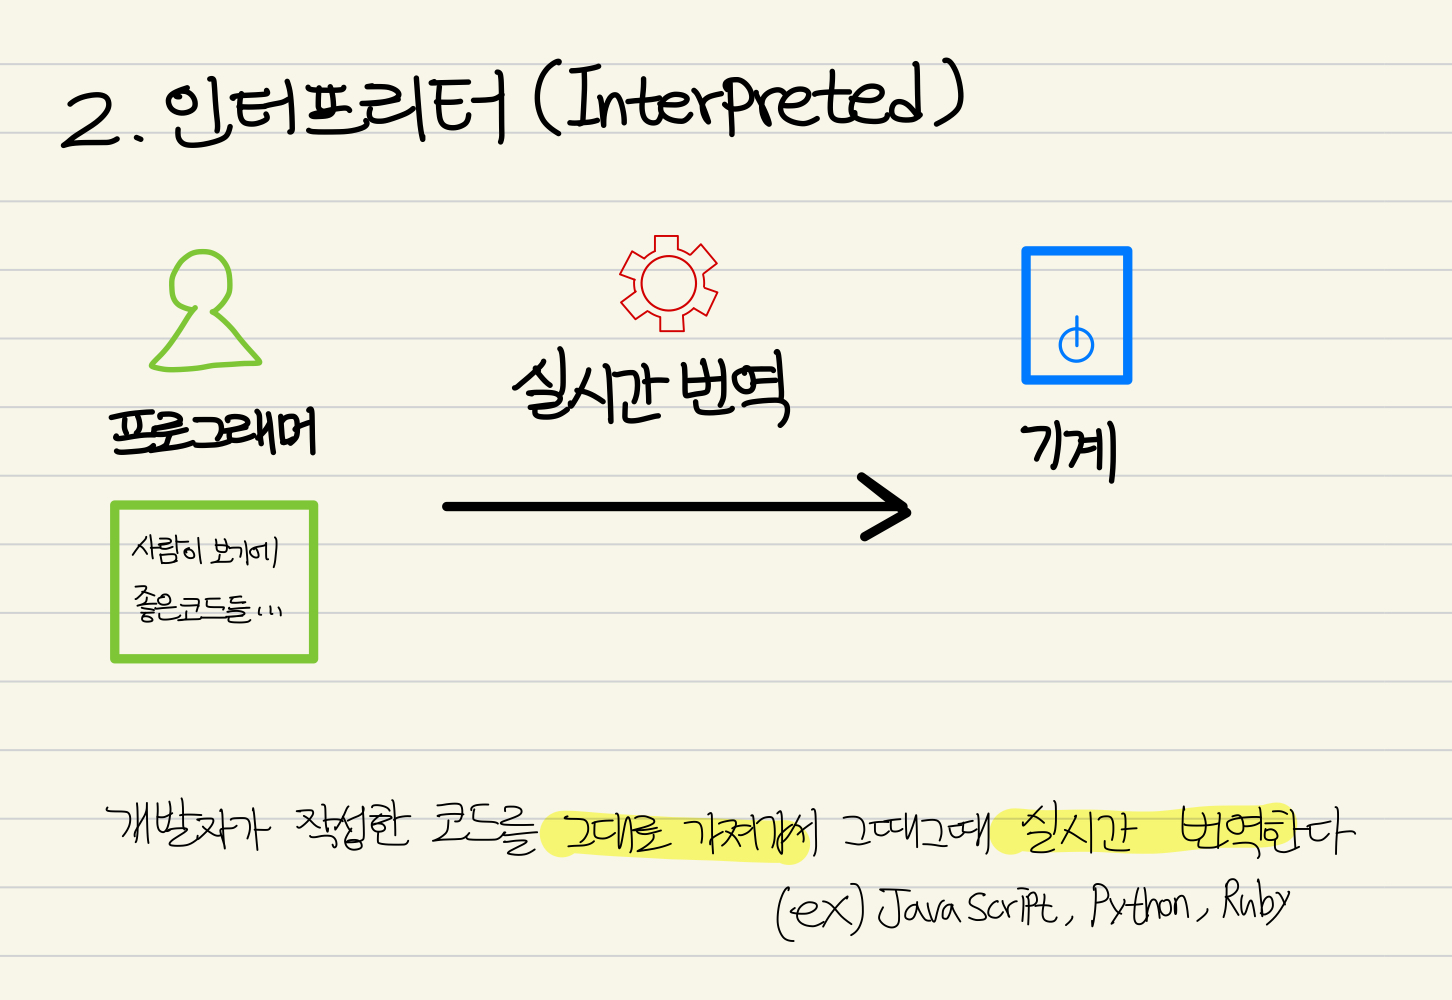 2. 인터프리터 (Interpreted)
실시간 번역
프로그래머
기계
사람이 보기에
좋은코드들...
개발자가 작성한 코드를 그대로 가져가서 그때그때 실시간 번역한다
(ex) JavaScript, Python, Ruby